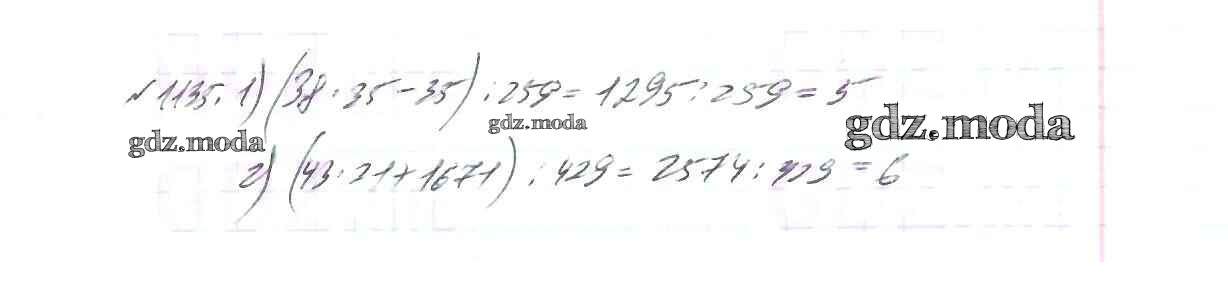 №1135. 1) (38 · 35 - 35) : 259 = 1295 : 259 = 5
gdz.moda gdz.moda gdz.moda
2) (43 · 21 + 1671) : 429 = 2574 : 429 = 6